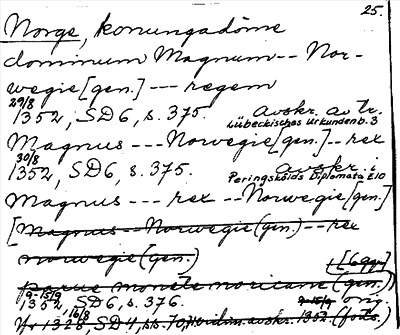 25.
Norge, konungadöme
dominum Magnum -- Nor-
wegie [gen.] --- regem
29/8
1352, SD6, s. 375. avskr. av tr.
Lübeckisches Urkundenb. 3
Magnus --- Norwegie [gen.] -- rex
30/8
1352, SD6, s. 375. avskr. i
Peringskiölds Diplomata E10
Magnus --- rex -- Norwegie [gen.]
[Magnus -- Norwegie (gen.) -- rex
norwegie (gen.) [6 ggr]
parue monete noricane (gen.)
9-15/9
1352, SD6, s. 376. 9-15/9 orig.
16/8
1328, SD4, avskr. 1352. (forts.)